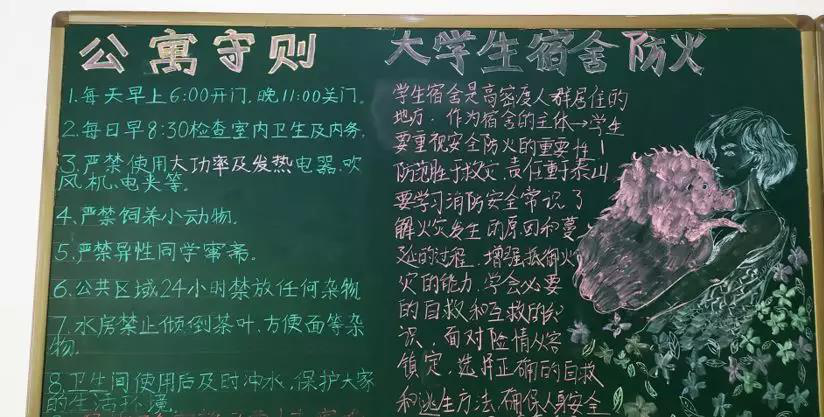 公寓守则
1.每天早上6:00开门.晚11:00关门.
2.每日早8:30检查室内卫生及内务.
3.严禁使用大功率及发热电器.吹
风机.电夹等.
4.严禁饲养小动物.
5.严禁异性同学窜斋.
6.公共区域24小时禁放任何杂物
7.水房禁止倾倒茶叶.方便面等杂
物.
8.卫生间使用后及时冲水,保护大家
的生活环境.
大学生宿舍防火
学生宿舍是高密度人群居住的
地方.作为宿舍的主体→学生
要重视安全防火的重要性!
防范胜于救灾.责任重于泰山
要学习消防安全常识了
解火灾发生的原因和蔓
延的过程.增强抵御火
灾的能力.学会必要
的自救和互救的知
识.面对险情从容
镇定.选择正确的自救
和逃生方法,确保人身安全